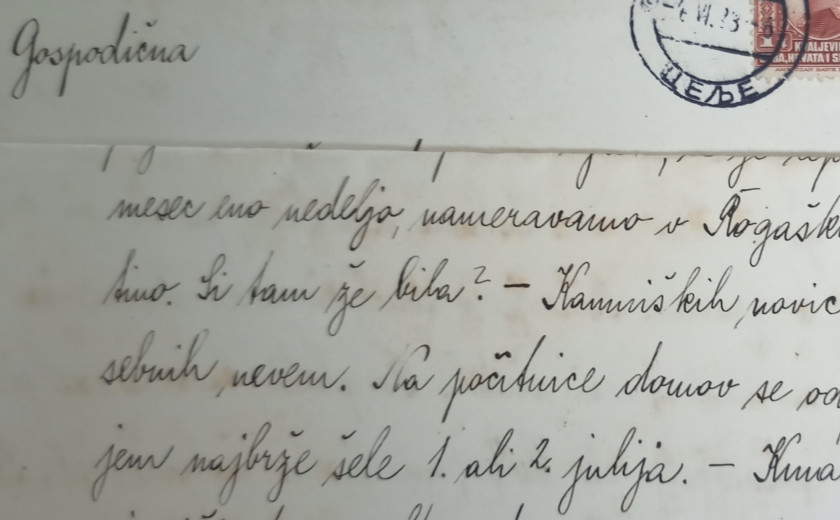 Gospodična
-4.VI.23-8
ЦЕЉЕ
KRALJEVI
BA, HRVATA I S
mesec eno nedeljo, nameravamo v Rogašk
tino. Si tam že bila? – Kamniških novic
sebnih nevem. Na počitnice domov se od
jem najbrže šele 1. ali 2. julija. –